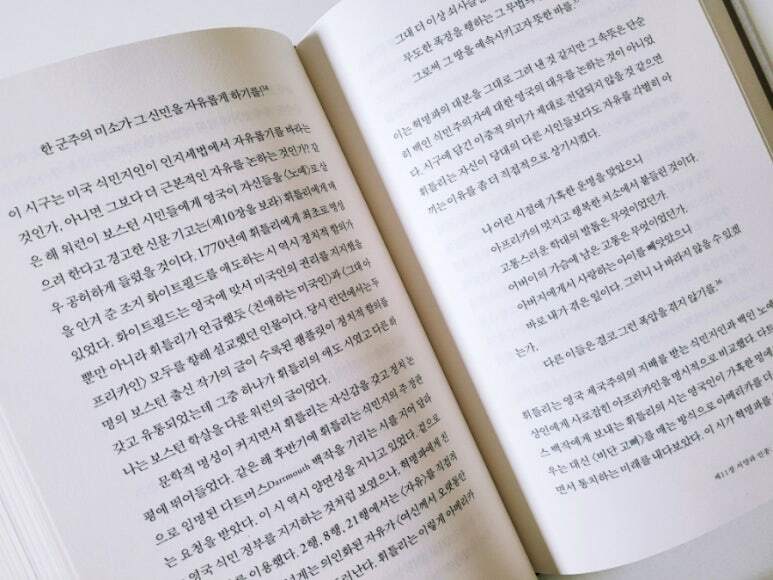 한 군주의 미소가 그 신민을 자유롭게 하기를!¹⁴
이 시구는 미국 식민지인이 인지세법에서 자유롭기를 바라는
것인가, 아니면, 그보다 더 근본적인 자유를 논하는 것인가? 같
은 해 워런이 보스턴 시민들에게 영국이 자신들을 〈노예〉로 삼
으려 한다고 경고한 신문 기고는(제10장을 보라) 휘틀리에게 매
우 공허하게 들렸을 것이다. 1770년에 휘틀리에게 최초로 명성
을 안겨 준 조지 화이트필드를 애도하는 시 역시 정치적 함의가
있었다. 화이트필드는 영국에 맞서 미국인의 권리를 지지했을
뿐만 아니라 휘틀리가 언급했듯 〈친애하는 미국인〉과 〈그대 아
프리카인〉 모두를 향해 설교했던 인물이다. 당시 런던에서는 두
명의 보스턴 출신 작가의 글이 수록된 팸플릿이 정치적 함의를
갖고 유통되었는데 그중 하나가 휘틀리의 애도 시였고 다른 하
나는 보스턴 학살을 다룬 워런의 글이었다.
문학적 명성이 커지면서 휘틀리는 자신감을 갖고 정치 논
평에 뛰어들었다. 같은 해 후반기에 휘틀리는 식민지의 주 장관
으로 임명된 다트머스Dartmouth 백작을 기리는 시를 지어 달라
는 요청을 받았다. 이 시 역시 양면성을 지니고 있었다. 겉으로
영국 식민 정부를 지지하는 것처럼 보였으나, 혁명파에게 친
를 이용했다. 2행, 8행, 21행에서는 〈자유〉를 직접적
게는 의인화된 자유가 〈여신께서 오랫동안
드러난다. 휘틀리는 이렇게 아메리카
그대 더 이상 쇠사슬을
무도한 폭정을 행하는 그 무법의
그로써 그 땅을 예속시키고자 뜻한 바를.
이는 혁명파의 대분을 그대로 그려 낸 것 같지만 그 속뜻은 단순
히 백인 식민주의자에 대한 영국의 대우를 논하는 것이 아니었
다. 시구에 담긴 이중적 의미가 제대로 전달되지 않을 것 같으면
휘틀리는 자신이 당대의 다른 시인들보다도 자유를 각별히 아
끼는 이유를 좀 더 직접적으로 상기시켰다.
나 어린 시절에 가혹한 운명을 맞았으니
아프리카의 멋지고 행복한 처소에서 붙들린 것이다.
고통스러운 학대의 발톱은 무엇이었던가,
어버이의 가슴에 남은 고통은 무엇이었던가.
아버지에게서 사랑하는 아이를 빼앗았으니
바로 내가 겪은 일이다. 그러니 나 바라지 않을 수 있겠
는가,
다른 이들은 결코 그런 폭압을 겪지 않기를.¹⁶
휘틀리는 영국 제국주의의 지배를 받는 식민지인과 백인 노예
상인에게 사로잡힌 아프리카인을 명시적으로 비교했다. 다트
스 백작에게 보내는 휘틀리의 시는 영국인이 가혹한 멍에
우는 대신 〈비단 고삐〉를 매는 방식으로 아메리카를 더
면서 통치하는 미래를 내다보았다. 이 시가 혁명파와
제11장 서명과 인종